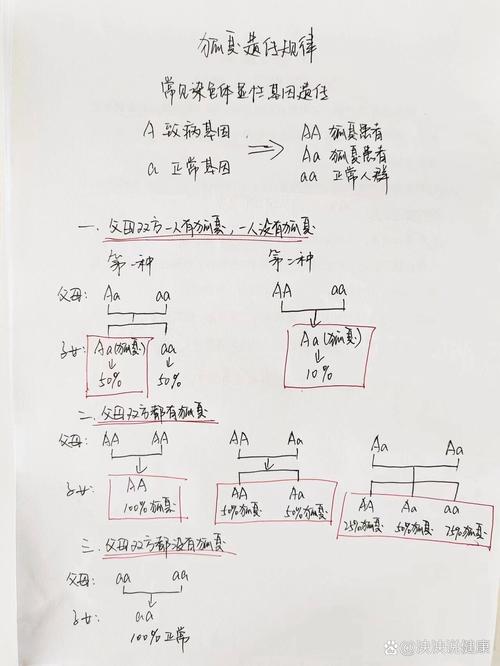 狐臭遗传规律
常见染色体显性基因遗传
A 致病基因 ⇒ AA 狐臭患者
Aa 狐臭患者
a 正常基因 aa 正常人群
一. 父母双方一人有狐臭,一人没有狐臭
第一种 第二种
父母: Aa aa AA aa
子女: Aa(狐臭) aa Aa(狐臭)
50% 50% 10%
二. 父母双方都有狐臭
父母: AA AA AA Aa Aa Aa
子女: AA AA Aa AA Aa aa
100%狐臭 50%狐臭 50%狐臭 25%狐臭 50%狐臭 75%狐臭
三. 父母双方都没有狐臭
父母: aa aa
子女: aa
100%正常
泱泱说健康